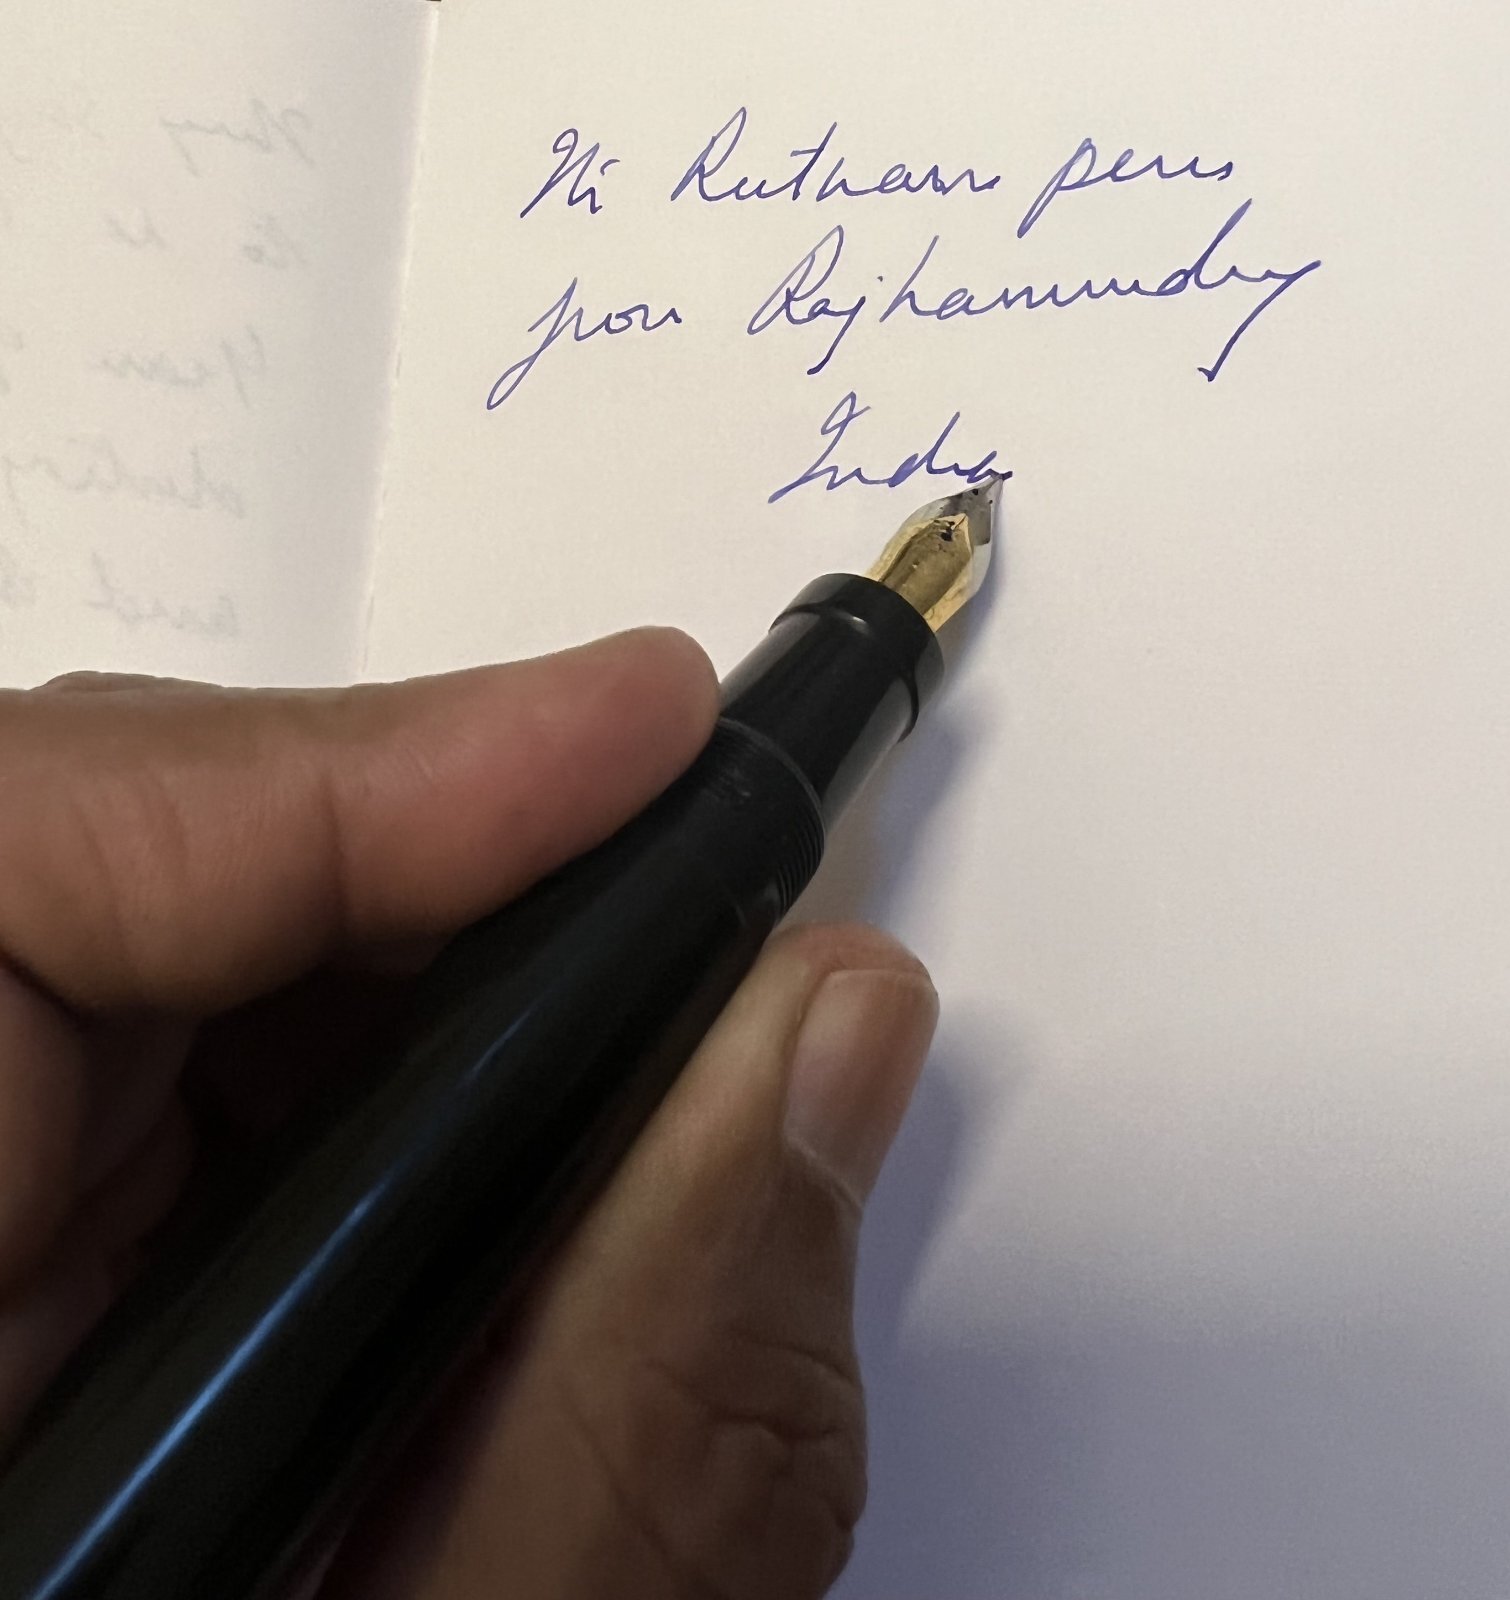 Hi Ratnam pens
from Rajhamundry
India